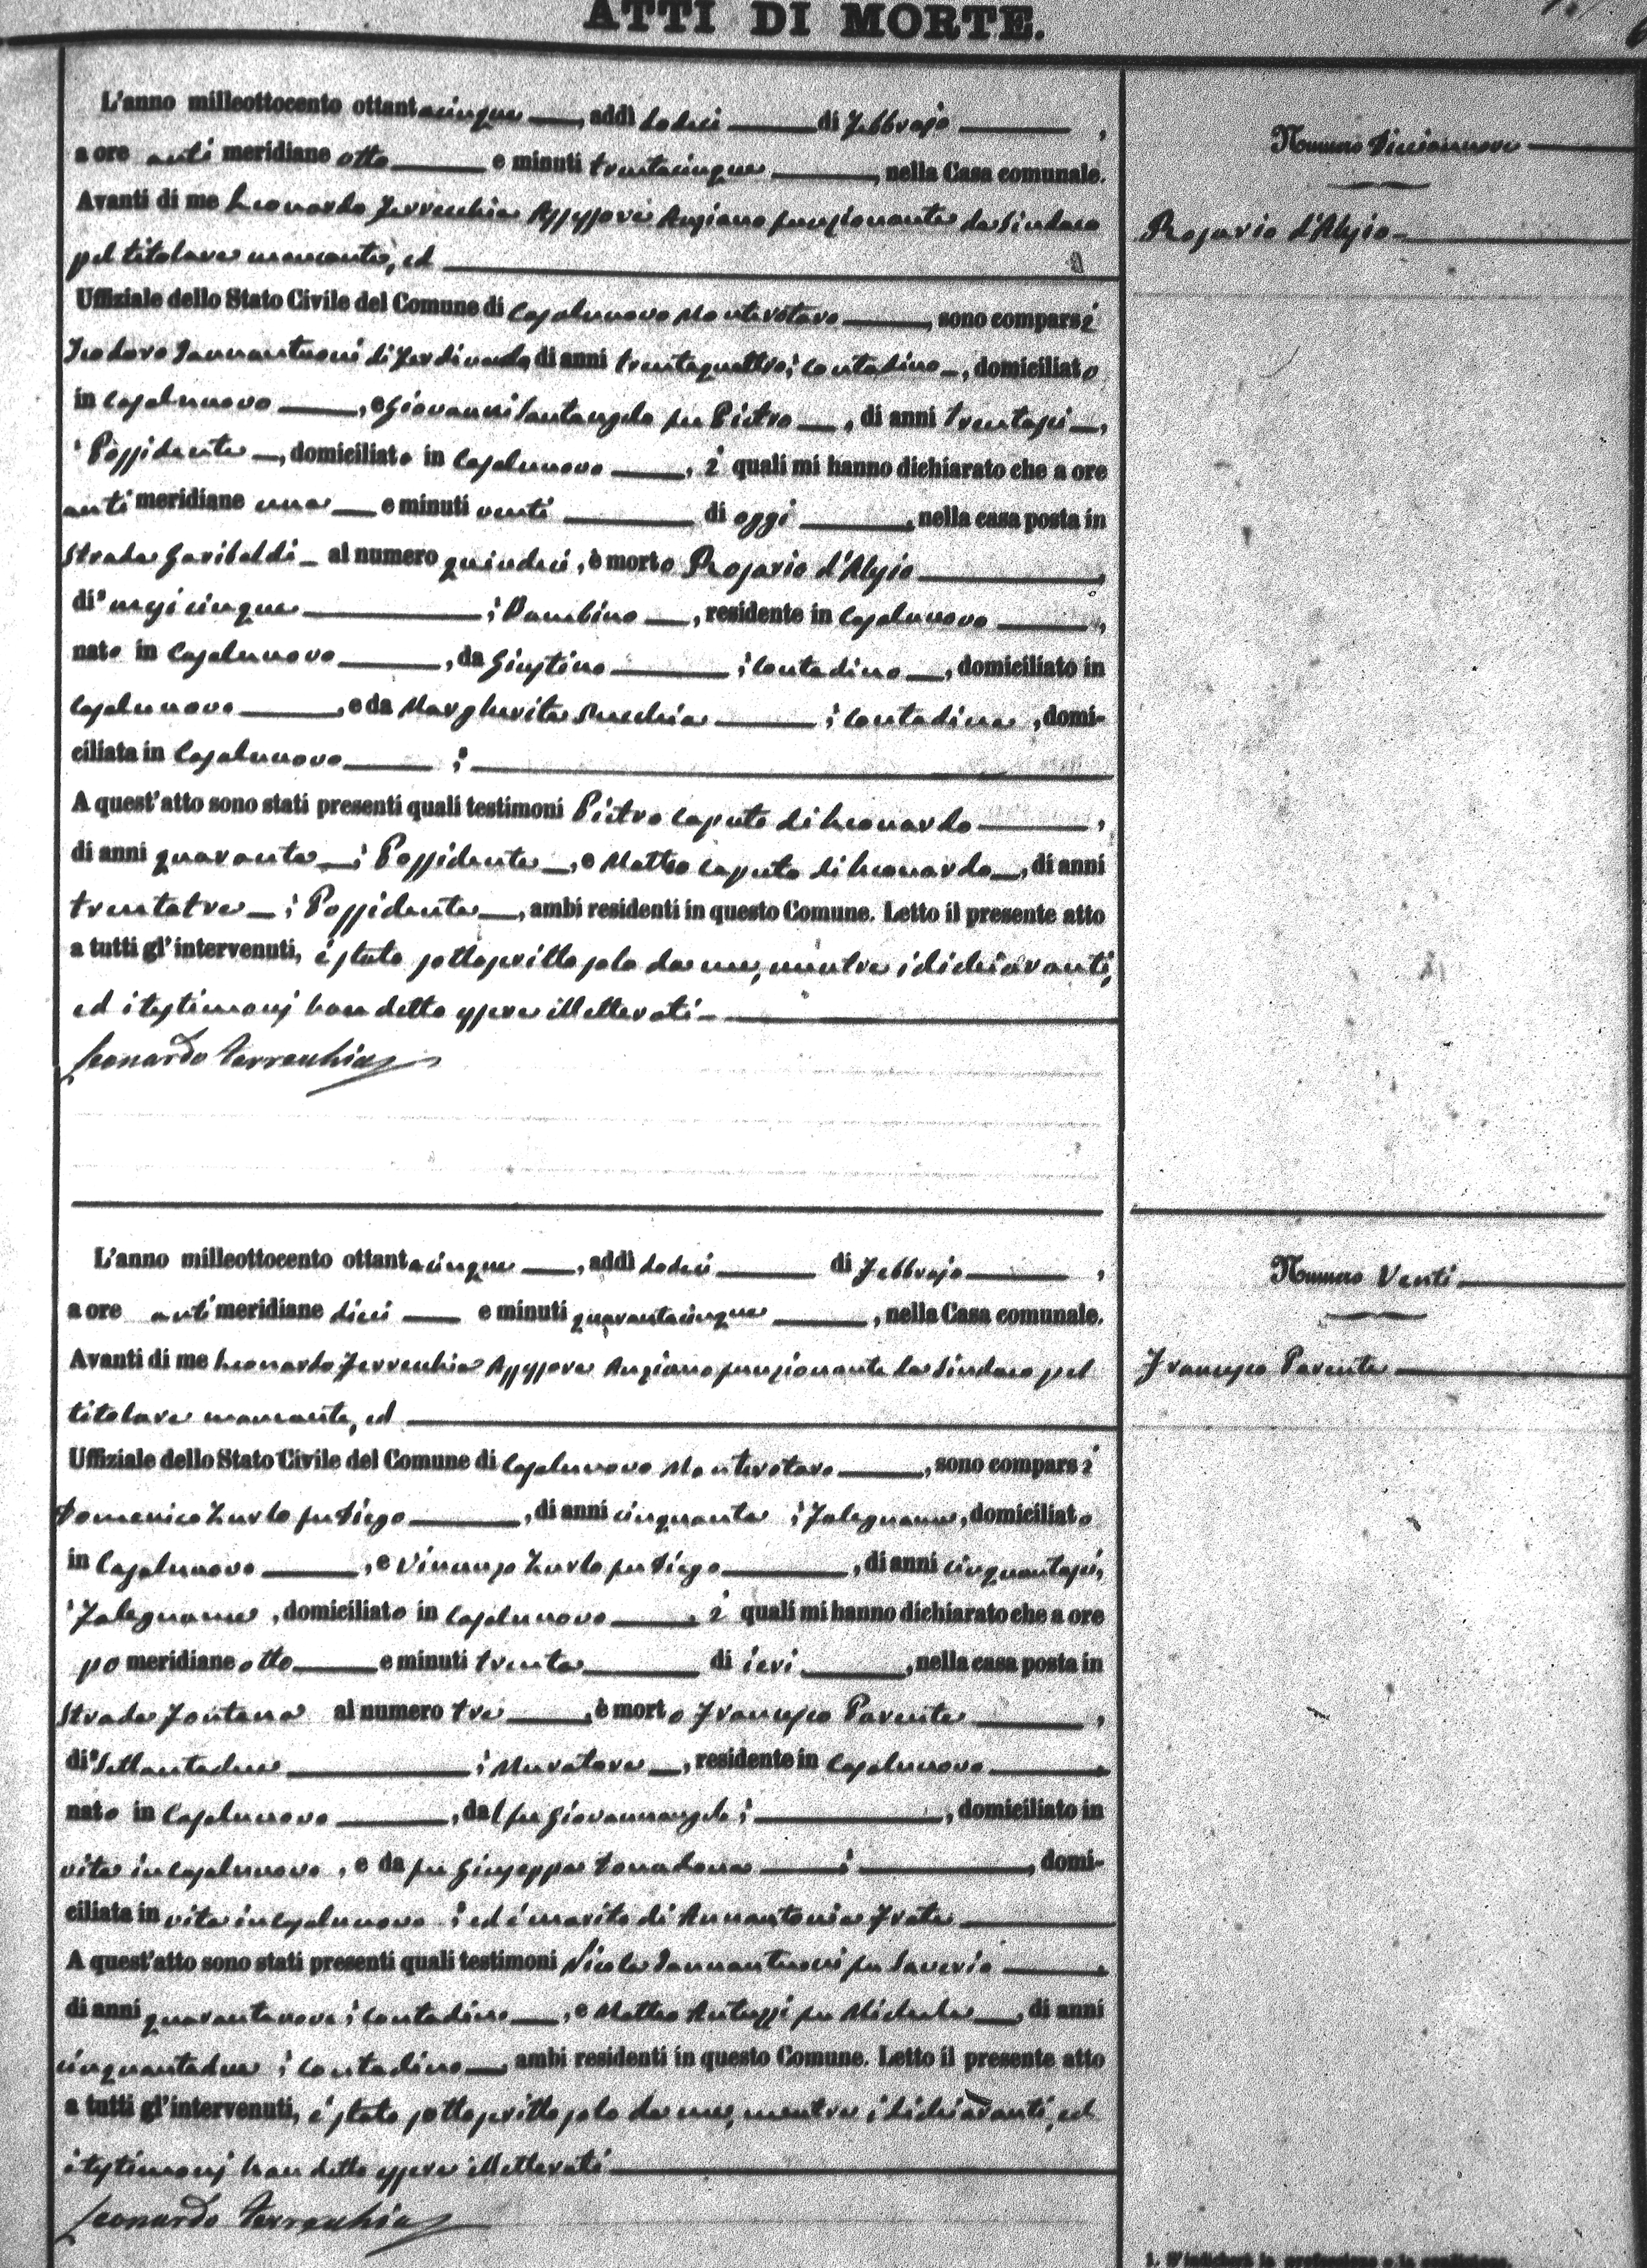 ATTI DI MORTE.
L'anno milleottocento ottantacinque, addì dodici di Febbrajo,
a ore anti meridiane otto e minuti trentacinque, nella Casa comunale.
Avanti di me Leonardo Ferrecchia Assessore Anziano funzionante da Sindaco
pel titolare mancante, ed
Uffiziale dello Stato Civile del Comune di Casalnuovo Monterotaro, sono comparsi
Teodoro Iannantuoni di Ferdinando, di anni trentaquattro, contadino, domiciliato
in Casalnuovo, e Giovanni Santangelo fu Pietro, di anni trentasei,
Possidente, domiciliato in Casalnuovo, i quali mi hanno dichiarato che a ore
anti meridiane una e minuti venti di oggi, nella casa posta in
Strada Garibaldi al numero quindici, è morto Rosario d'Alesio,
di mesi cinque, Bambino, residente in Casalnuovo,
nato in Casalnuovo, da Giustino, contadino, domiciliato in
Casalnuovo, e da Margherita, contadina, domi-
ciliata in Casalnuovo;
A quest'atto sono stati presenti quali testimoni Pietro Caputo di Leonardo,
di anni quaranta, Possidente, e Matteo Caputo di Leonardo, di anni
trentatre, Possidente, ambi residenti in questo Comune. Letto il presente atto
a tutti gl'intervenuti, è stato sottoscritto solo da me, mentre i dichiaranti,
ed i testimonj han detto essere illetterati.
Leonardo Ferrecchia
Numero Diciannove
Rosario d'Alesio
L'anno milleottocento ottantacinque, addì dodici di Febbrajo,
a ore anti meridiane dieci e minuti quarantacinque, nella Casa comunale.
Avanti di me Leonardo Ferrecchia Assessore Anziano funzionante da Sindaco pel
titolare mancante, ed
Uffiziale dello Stato Civile del Comune di Casalnuovo Monterotaro, sono comparsi
Domenico Zurlo fu Diego, di anni cinquanta, Falegname, domiciliato
in Casalnuovo, e Vincenzo Zurlo fu Diego, di anni cinquantasei,
Falegname, domiciliato in Casalnuovo, i quali mi hanno dichiarato che a ore
po meridiane otto e minuti trenta di ieri, nella casa posta in
Strada Fontana al numero tre, è morto Francesco Parente,
di settantadue, Muratore, residente in Casalnuovo,
nato in Casalnuovo, dal fu Giovannangelo;, domiciliato in
vita in Casalnuovo, e da fu Giuseppa;, domi-
ciliata in vita in Casalnuovo; ed è marito di Annantonia Frate
A quest'atto sono stati presenti quali testimoni Nicola Iannantuoni fu Saverio,
di anni quarantanove, contadino, e Matteo fu Michele, di anni
cinquantadue, contadino, ambi residenti in questo Comune. Letto il presente atto
a tutti gl'intervenuti, è stato sottoscritto solo da me, mentre i dichiaranti, ed
i testimonj han detto essere illetterati
Leonardo Ferrecchia
Numero Venti
Francesco Parente